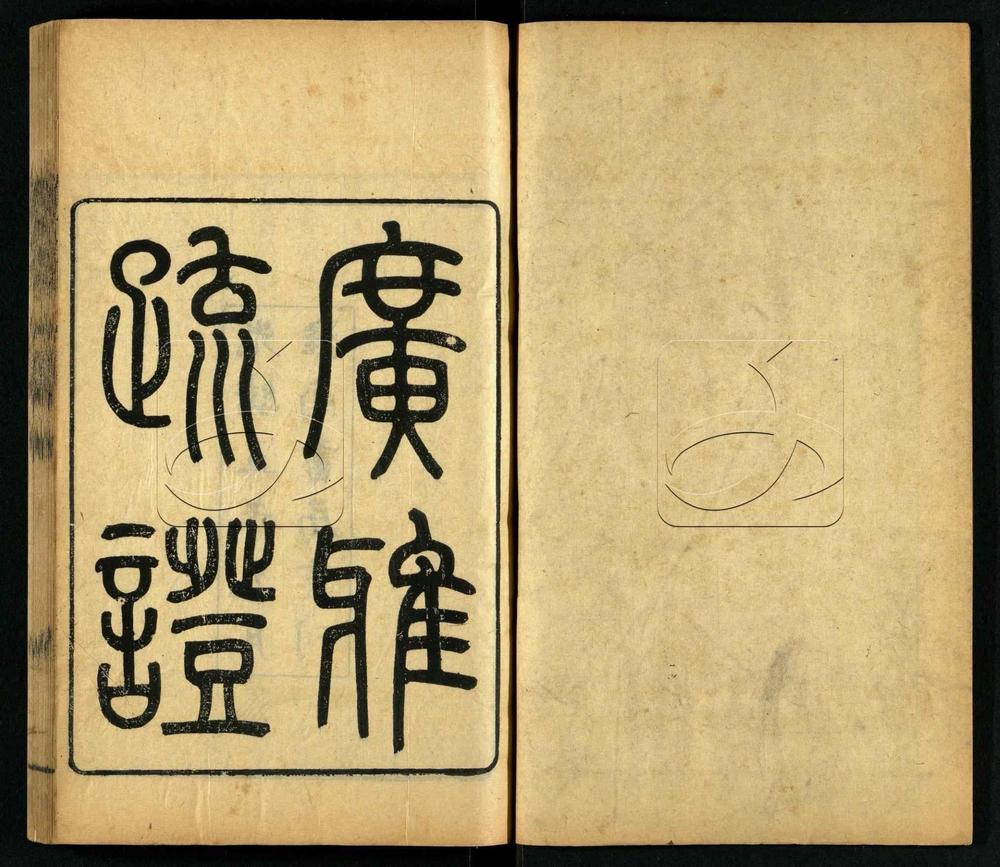 廣雅
疏證